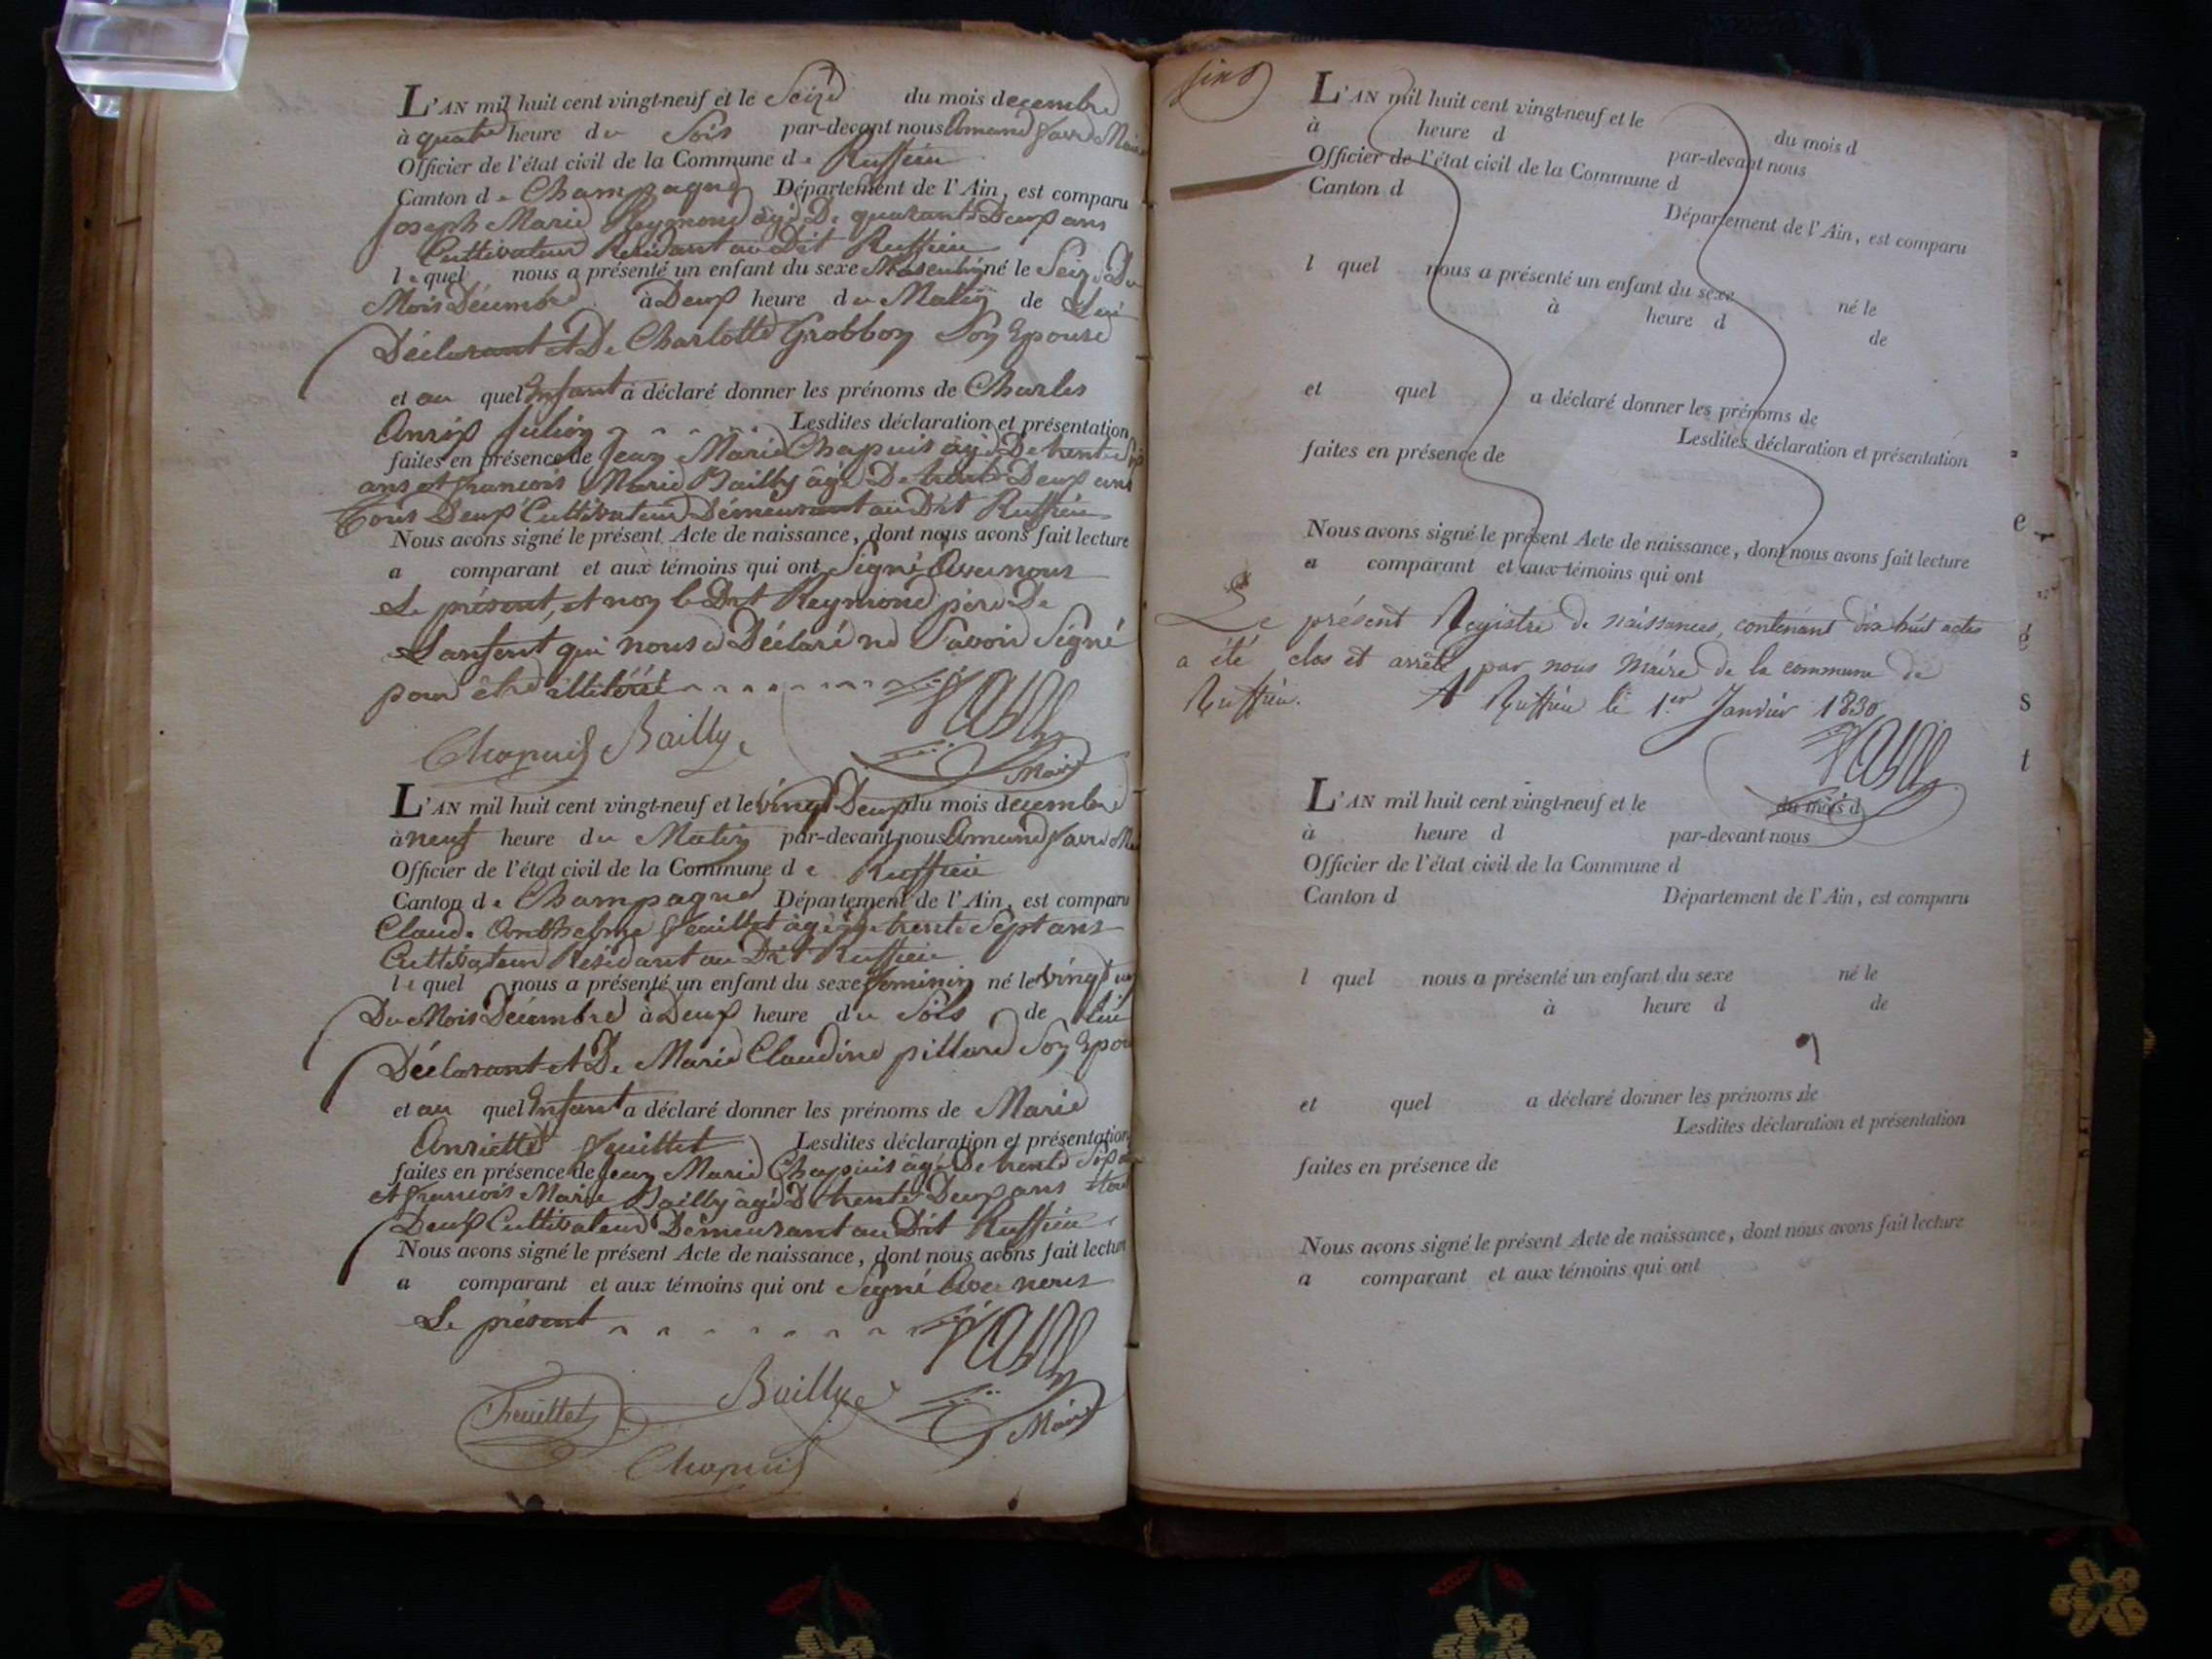 L'AN mil huit cent vingt-neuf et le Seize du mois decembre
à quatre heure du Soir par-devant nous Amand favre Maire
Officier de l'état civil de la Commune de Ruffieu
Canton de Champagne Département de l'Ain, est comparu
Joseph Marie Reymond âgé De quarante Deux ans
Cultivateur Residant au Dit Ruffieu
lequel nous a présenté un enfant du sexe Masculin né le Seize Du
Mois Décembre à Deux heure du Matin de Lui
Déclarant et De Charlotte Grobbon Son Epouse
et au quel Enfant a déclaré donner les prénoms de Charles
Anrix julien Lesdites déclaration et présentation
faites en présence de Jean Marie Chapuis âgé De trente Sept
ans et francois Marie Bailly âgé De trente Deux ans
Tous Deux Cultivateur Démeurant au Dit Ruffieu
Nous avons signé le présent Acte de naissance, dont nous avons fait lecture
a comparant et aux témoins qui ont Signé Avec nous
Le présent, et non le Dit Reymond père De
Lanfent qui nous a Déclaré ne Savoir Signé
pour être illitéré
Chapuis Bailly favre
Maire
L'AN mil huit cent vingt-neuf et le vingt Deux du mois decembre
à neuf heure du Matin par-devant nous Amand favre
Officier de l'état civil de la Commune de Ruffieu
Canton de Champagne Département de l'Ain, est comparu
Claude Anthelme feuillet âgé De trente Sept ans
Cultivateur Résidant au Dit Ruffieu
lequel nous a présenté un enfant du sexe feminin né le vingt un
Du Mois Décembre à Deux heure du Soir de Lui
Déclarant et De Marie Claudine pillard Son Epou
et au quel Enfant a déclaré donner les prénoms de Marie
Anriette feuillet Lesdites déclaration et présentation
faites en présence de Jean Marie Chapuis âgé De trente Sept
et francois Marie Bailly âgé De trente Deux ans tous
Deux Cultivateur Démeurant au Dit Ruffieu
Nous avons signé le présent Acte de naissance, dont nous avons fait lecture
a comparant et aux témoins qui ont Signé Avec nous
Le présent
favre
Feuillet Bailly Maire
Chapuis
L'AN mil huit cent vingt-neuf et le du mois d
à heure d par-devant nous
Officier de l'état civil de la Commune d
Canton d Département de l'Ain, est comparu
l quel nous a présenté un enfant du sexe né le
à heure d de
et quel a déclaré donner les prénoms de
Lesdites déclaration et présentation
faites en présence de
Nous avons signé le présent Acte de naissance, dont nous avons fait lecture
a comparant et aux témoins qui ont
Le présent Registre de naissances, contenant dix huit actes
a été clos et arrêté par nous Maire de la commune de
Ruffieu. A Ruffieu le 1.er Janvier 1830
favre
L'AN mil huit cent vingt-neuf et le du mois d
à heure d par-devant nous
Officier de l'état civil de la Commune d
Canton d Département de l'Ain, est comparu
l quel nous a présenté un enfant du sexe né le
à heure d de
et quel a déclaré donner les prénoms de
Lesdites déclaration et présentation
faites en présence de
Nous avons signé le présent Acte de naissance, dont nous avons fait lecture
a comparant et aux témoins qui ont